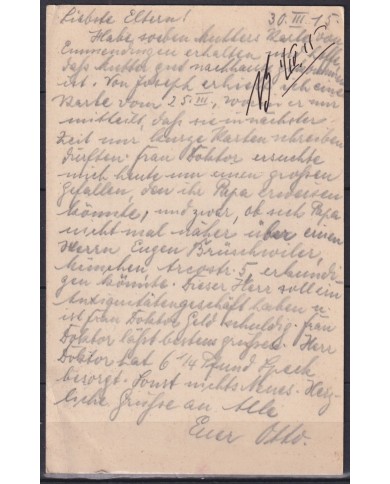 Liebste Eltern! 30. III. 15.
Habe soeben Mutters Karte von
Emmendingen erhalten
daß Mutter gut nachhause gekommen
ist. Von Joseph erhielt ich eine
Karte vom 25. III., worin er mir
mitteilt, daß sie in nächster
Zeit nur wenige Karten schreiben
dürften. Frau Doktor ersuchte
mich heute um einen großen
Gefallen, den ihr Papa erweisen
könnte, und zwar, ob sich Papa
nicht mal näher über einen
Herrn Eugen Brüschweiler,
München 5, erkundi-
gen könnte. Dieser Herr soll ein
Antiquitätengeschäft haben u.
ist Frau Doktor Geld schuldig. Frau
Doktor läßt bestens grüßen. Herr
Doktor hat 6 1/4 Pfund Speck
besorgt. Sonst nichts Neues. Herz-
liche Grüße an Alle
Euer Otto.